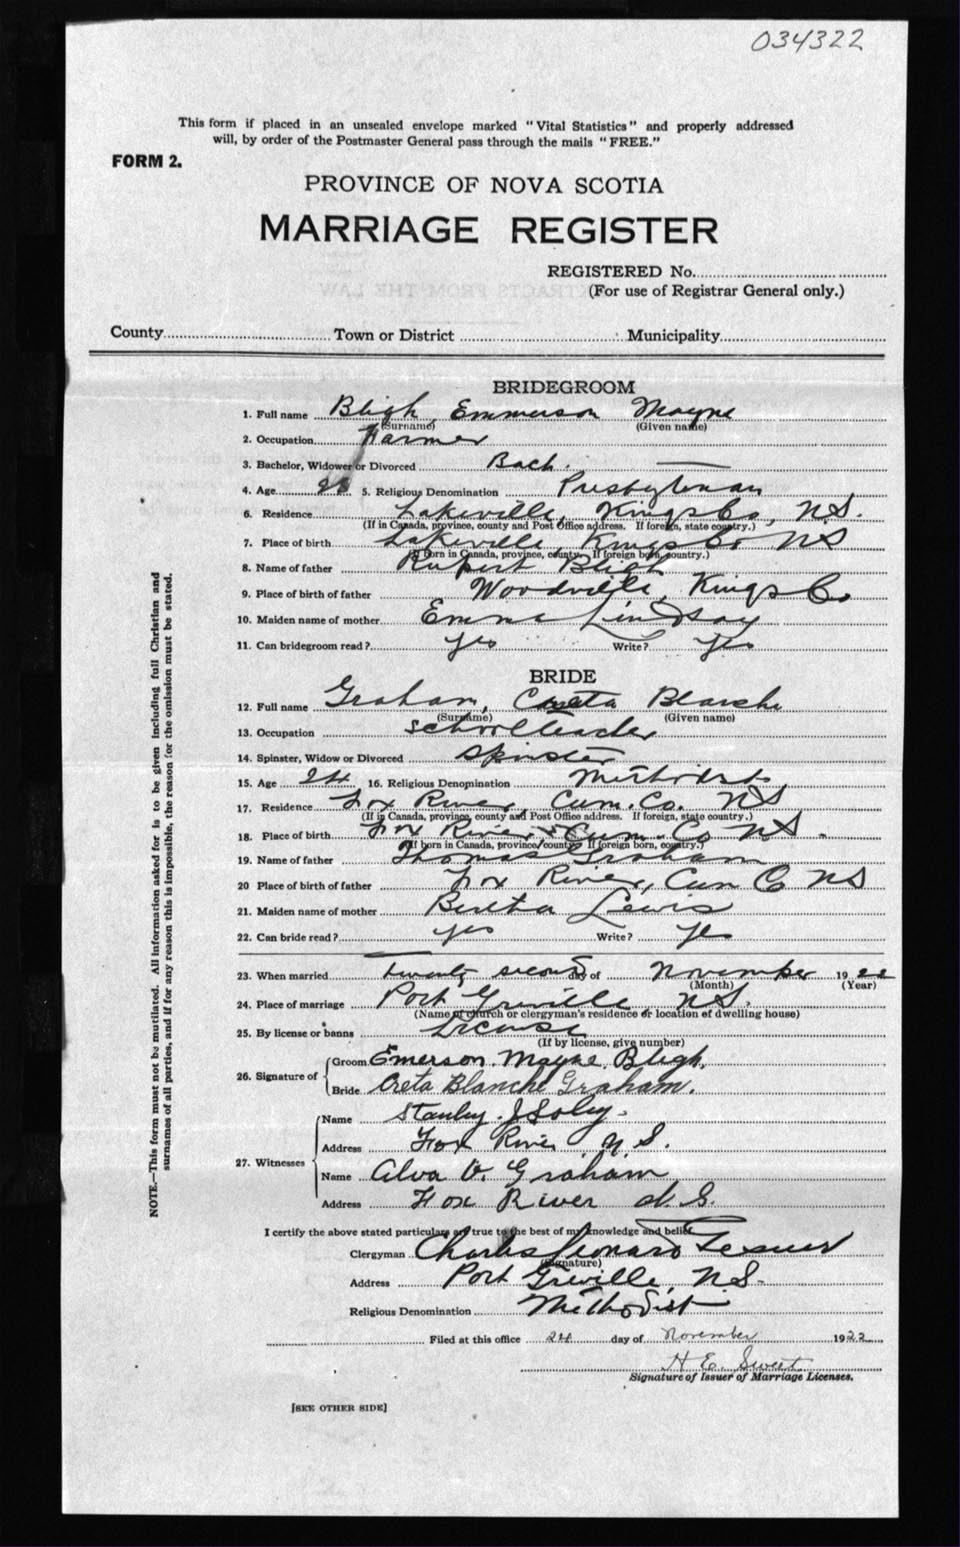 034322
This form if placed in an unsealed envelope marked "Vital Statistics" and properly addressed
will, by order of the Postmaster General pass through the mails "FREE."
FORM 2.
PROVINCE OF NOVA SCOTIA
MARRIAGE REGISTER
REGISTERED No.
(For use of Registrar General only.)
County Town or District Municipality
BRIDEGROOM
1. Full name Bligh, Emmerson Mayne
(Surname) (Given name)
2. Occupation Farmer
3. Bachelor, Widower or Divorced Bach.
4. Age 5. Religious Denomination Presbyterian
6. Residence Lakeville, Kings Co, N.S.
(If in Canada, province, county and Post Office address. If foreign, state country.)
7. Place of birth Lakeville, Kings Co NS
(If born in Canada, province, county. If foreign born, country.)
8. Name of father Rupert Bligh
9. Place of birth of father Woodville, Kings Co
10. Maiden name of mother Emma Lindsay
11. Can bridegroom read? yes Write? yes
BRIDE
12. Full name Graham, Creta Blanche
(Surname) (Given name)
13. Occupation Schoolteacher
14. Spinster, Widow or Divorced Spinster
15. Age 24 16. Religious Denomination Methodist
17. Residence Fox River, Cum. Co. NS
(If in Canada, province, county and Post Office address. If foreign, state country.)
18. Place of birth Fox River Cum. Co NS.
(If born in Canada, province/county. If foreign born, country.)
19. Name of father Thomas Graham
20 Place of birth of father Fox River, Cum Co NS
21. Maiden name of mother Bertha Lewis
22. Can bride read? yes Write? yes
23. When married twenty second day of November 1922
(Month) (Year)
24. Place of marriage Port Greville NS.
(Name of church or clergyman's residence or location of dwelling house)
25. By license or banns License
(If by license, give number)
26. Signature of Groom Emerson Mayne Bligh.
Bride Creta Blanche Graham.
27. Witnesses Name Stanley J Soley.
Address Fox River N.S.
Name Alva V. Graham
Address Fox River N.S.
I certify the above stated particulars are true to the best of my knowledge and belief.
Clergyman Charles Leonard
(Signature)
Address Port Greville, N.S.
Religious Denomination Methodist
Filed at this office 24 day of November 1922
H E. Sweet
Signature of Issuer of Marriage Licenses.
[SEE OTHER SIDE]
NOTE.—This form must not be mutilated. All information asked for is to be given including full Christian and
surnames of all parties, and if for any reason this is impossible, the reason for the omission must be stated.